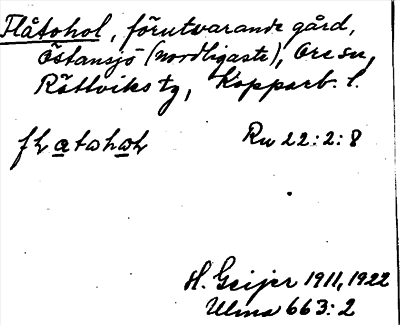 Flåtohol, förutvarande gård,
Östansjö (nordligaste), Ore sn,
Rättviks tg, Kopparb. l.
Rv 22:2:8
H. Geijer 1911, 1922
Ulma 663:2